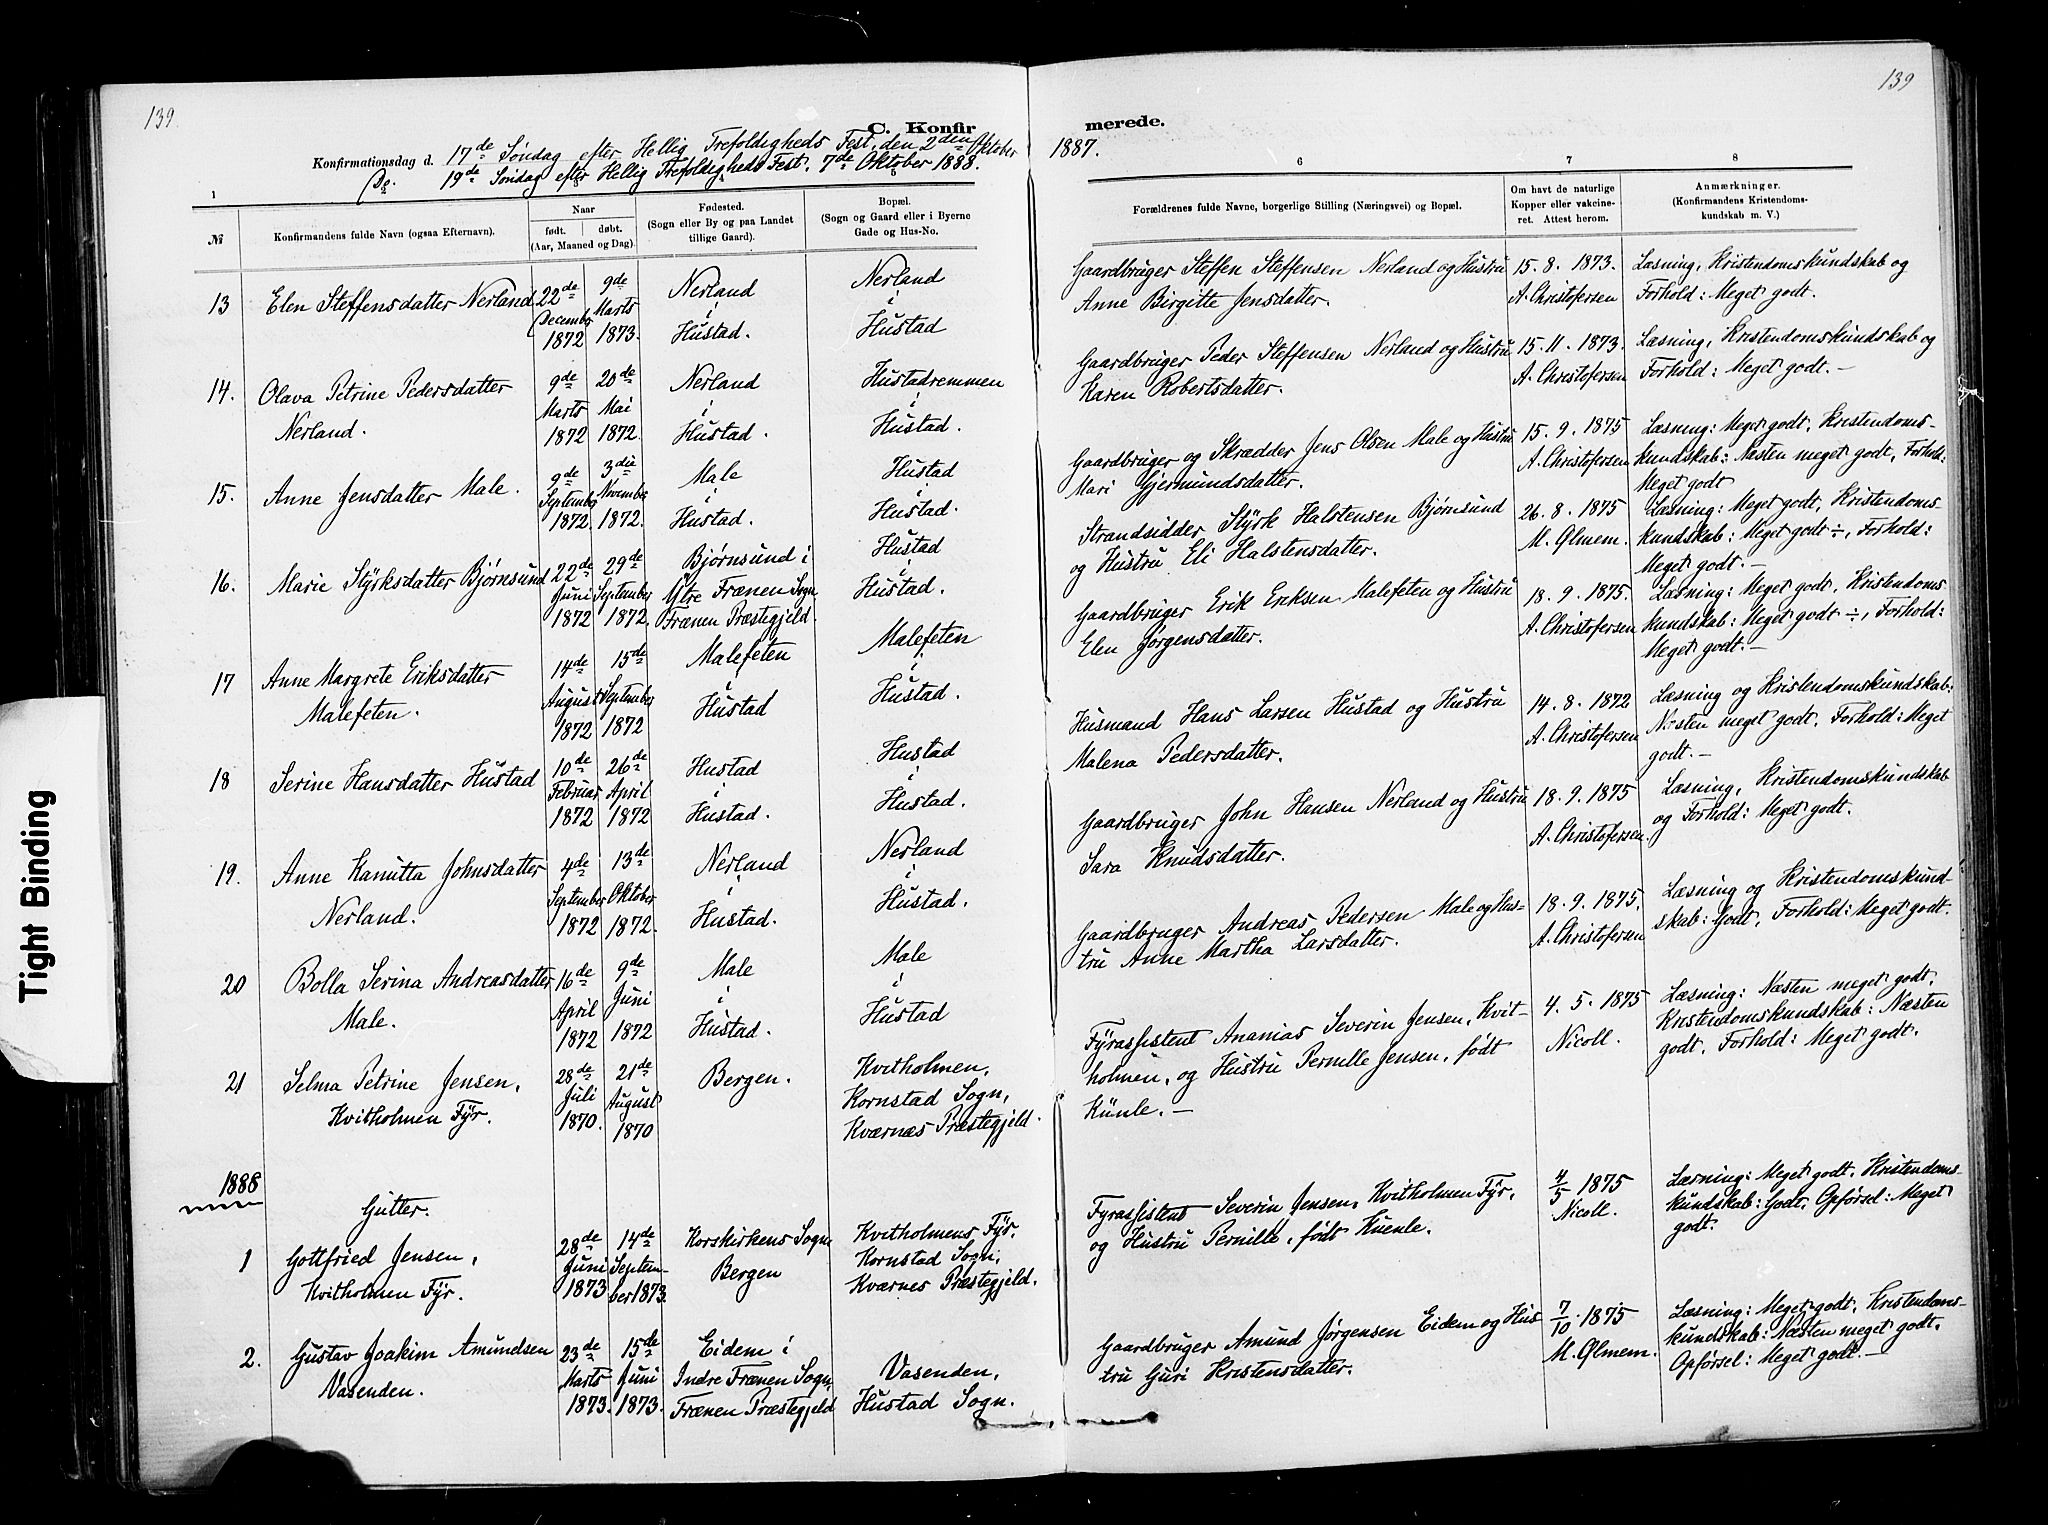 139
139
C. Konfir
merede.
Konfirmationsdag d. 17de Søndag efter Hellig Trefoldigheds Fest, den 2den Oktober
1887.
Do. 19de Søndag efter Hellig Trefoldigheds Fest. 7de Oktober 1888.
1
6
7
8
№
Konfirmandens fulde Navn (ogsaa Efternavn).
Naar
født.
døbt.
(Aar, Maaned og Dag).
Fødested.
(Sogn eller By og paa Landet
tillige Gaard).
Bopæl.
(Sogn og Gaard eller i Byerne
Gade og Hus-No.
Forældrenes fulde Navne, borgerlige Stilling (Næringsvei) og Bopæl.
Om havt de naturlige
Kopper eller vakcine-
ret. Attest herom.
Anmærkninger.
(Konfirmandens Kristendoms-
kundskab m. V.)
13
Elen Steffensdatter Nerland
22de
December
1872
9de
Marts
1873.
Nerland
i
Hustad.
Nerland
i
Hustad
Gaardbruger Steffen Steffensen Nerland og Hustru
Anne Birgitte Jensdatter.
15. 8. 1873.
A. Christofersen
Læsning, Kristendomskundskab og
Forhold: Meget godt.
14.
Olava Petrine Pedersdatter
Nerland.
9de
Marts
1872
20de
Mai
1872.
Nerland
i
Hustad.
Hustadremmen
i
Hustad.
Gaardbruger Peder Steffensen Nerland og Hustru
Karen Robertsdatter.
15. 11. 1873.
A. Christofersen
Læsning, Kristendomskundskab og
Forhold: Meget godt. –
15.
Anne Jensdatter Male.
9de
September
1872.
3die
November
1872.
Male
i
Hustad.
Hustad
i
Hustad.
Gaardbruger og Skrædder Jens Olsen Male og Hustru
Mari Gjermundsdatter.
15. 9. 1875
A. Christofersen
Læsning: Meget godt, Kristendoms-
kundskab: Næsten meget godt, Forhold:
Meget godt
16.
Marie Styrksdatter Bjørnsund
22de
Juni
1872
29de
September
1872.
Bjørnsund i
Ytre Frænen Sogn
Frænen Præstegjeld.
Hustad
i
Hustad.
Strandsidder Styrk Halstensen Bjørnsund
og Hustru Eli Halstensdatter.
26. 8. 1875
M. Glmem.
Læsning: Meget godt, Kristendoms-
kundskab: Meget godt ÷, Forhold:
Meget godt. –
17
Anne Margrete Eriksdatter
Malefeten.
14de
August
1872
15de
September
1872
Malefeten
i
Hustad
Malefeten
i
Hustad.
Gaardbruger Erik Eriksen Malefeten og Hustru
Elen Jørgensdatter.
18. 9. 1875.
A. Christofersen
Læsning: Meget godt, Kristendoms
kundskab: Meget godt ÷, Forhold:
Meget godt. –
18
Serine Hansdatter Hustad
10de
Februar
1872
26de
April
1872
Hustad
i
Hustad.
Hustad
i
Hustad.
Husmand Hans Larsen Hustad og Hustru
Malena Pedersdatter.
14. 8. 1872
A. Christofersen
Læsning og Kristendomskundskab:
Næsten meget godt, Forhold: Meget
godt. –
19.
Anne Kanutta Johnsdatter
Nerland.
4de
September
1872
13de
Oktober
1872.
Nerland
i
Hustad.
Nerland
i
Hustad.
Gaardbruger John Hansen Nerland og Hustru
Sara Knudsdatter.
18. 9. 1875
A. Christofersen.
Læsning, Kristendomskundskab
og Forhold: Meget godt.
20
Bolla Serina Andreasdatter
Male.
16de
April
1872
9de
Juni
1872
Male
i
Hustad.
Male
i
Hustad
Gaardbruger Andreas Pedersen Male og Hus-
tru Anne Martha Larsdatter.
18. 9. 1875.
A. Christofersen
Læsning og Kristendomskund-
skab: Godt, Forhold: Meget godt.
21
Selma Petrine Jensen,
Kvitholmen Fyr.
28de
Juli
1870.
21de
August
1870
Bergen.
Kvitholmen,
Kornstad Sogn,
Kværnæs Præstegjeld.
Fyrassistent Ananias Severin Jensen, Kvit-
holmen, og Hustru Pernille Jensen, født
Künle. –
4. 5. 1875
Nicoll.
Læsning: Næsten meget godt,
Kristendomskundskab: Næsten
godt, Forhold: Meget godt.
1888
Gutter.
1
Gottfried Jensen,
Kvitholmen Fyr.
28de
Juni
1873
14de
Septem-
ber 1873.
Korskirkens Sogn
Bergen
Kvitholmens Fyr,
Kornstad Sogn,
Kværnes Præstegjeld.
Fyrassistent Severin Jensen, Kvitholmen Fyr,
og Hustru Pernille, født Kuenle.
4/5 1875
Nicoll.
Læsning: Meget godt, Kristendoms-
kundskab: Godt, Opførsel: Meget
godt.
2.
Gustav Joakim Amundsen
Vasenden.
23de
Marts
1873.
15de
Juni
1873.
Eidem i
Indre Frænen Sogn,
Frænen Præstegjeld
Vasenden,
Hustad Sogn.
Gaardbruger Amund Jørgensen Eidem og Hus
tru Guri Kristensdatter.
7/10. 1875
M. Glmem.
Læsning: Meget godt, Kristendoms-
kundskab: Næsten meget godt.
Opførsel: Meget godt. –
Tight Binding